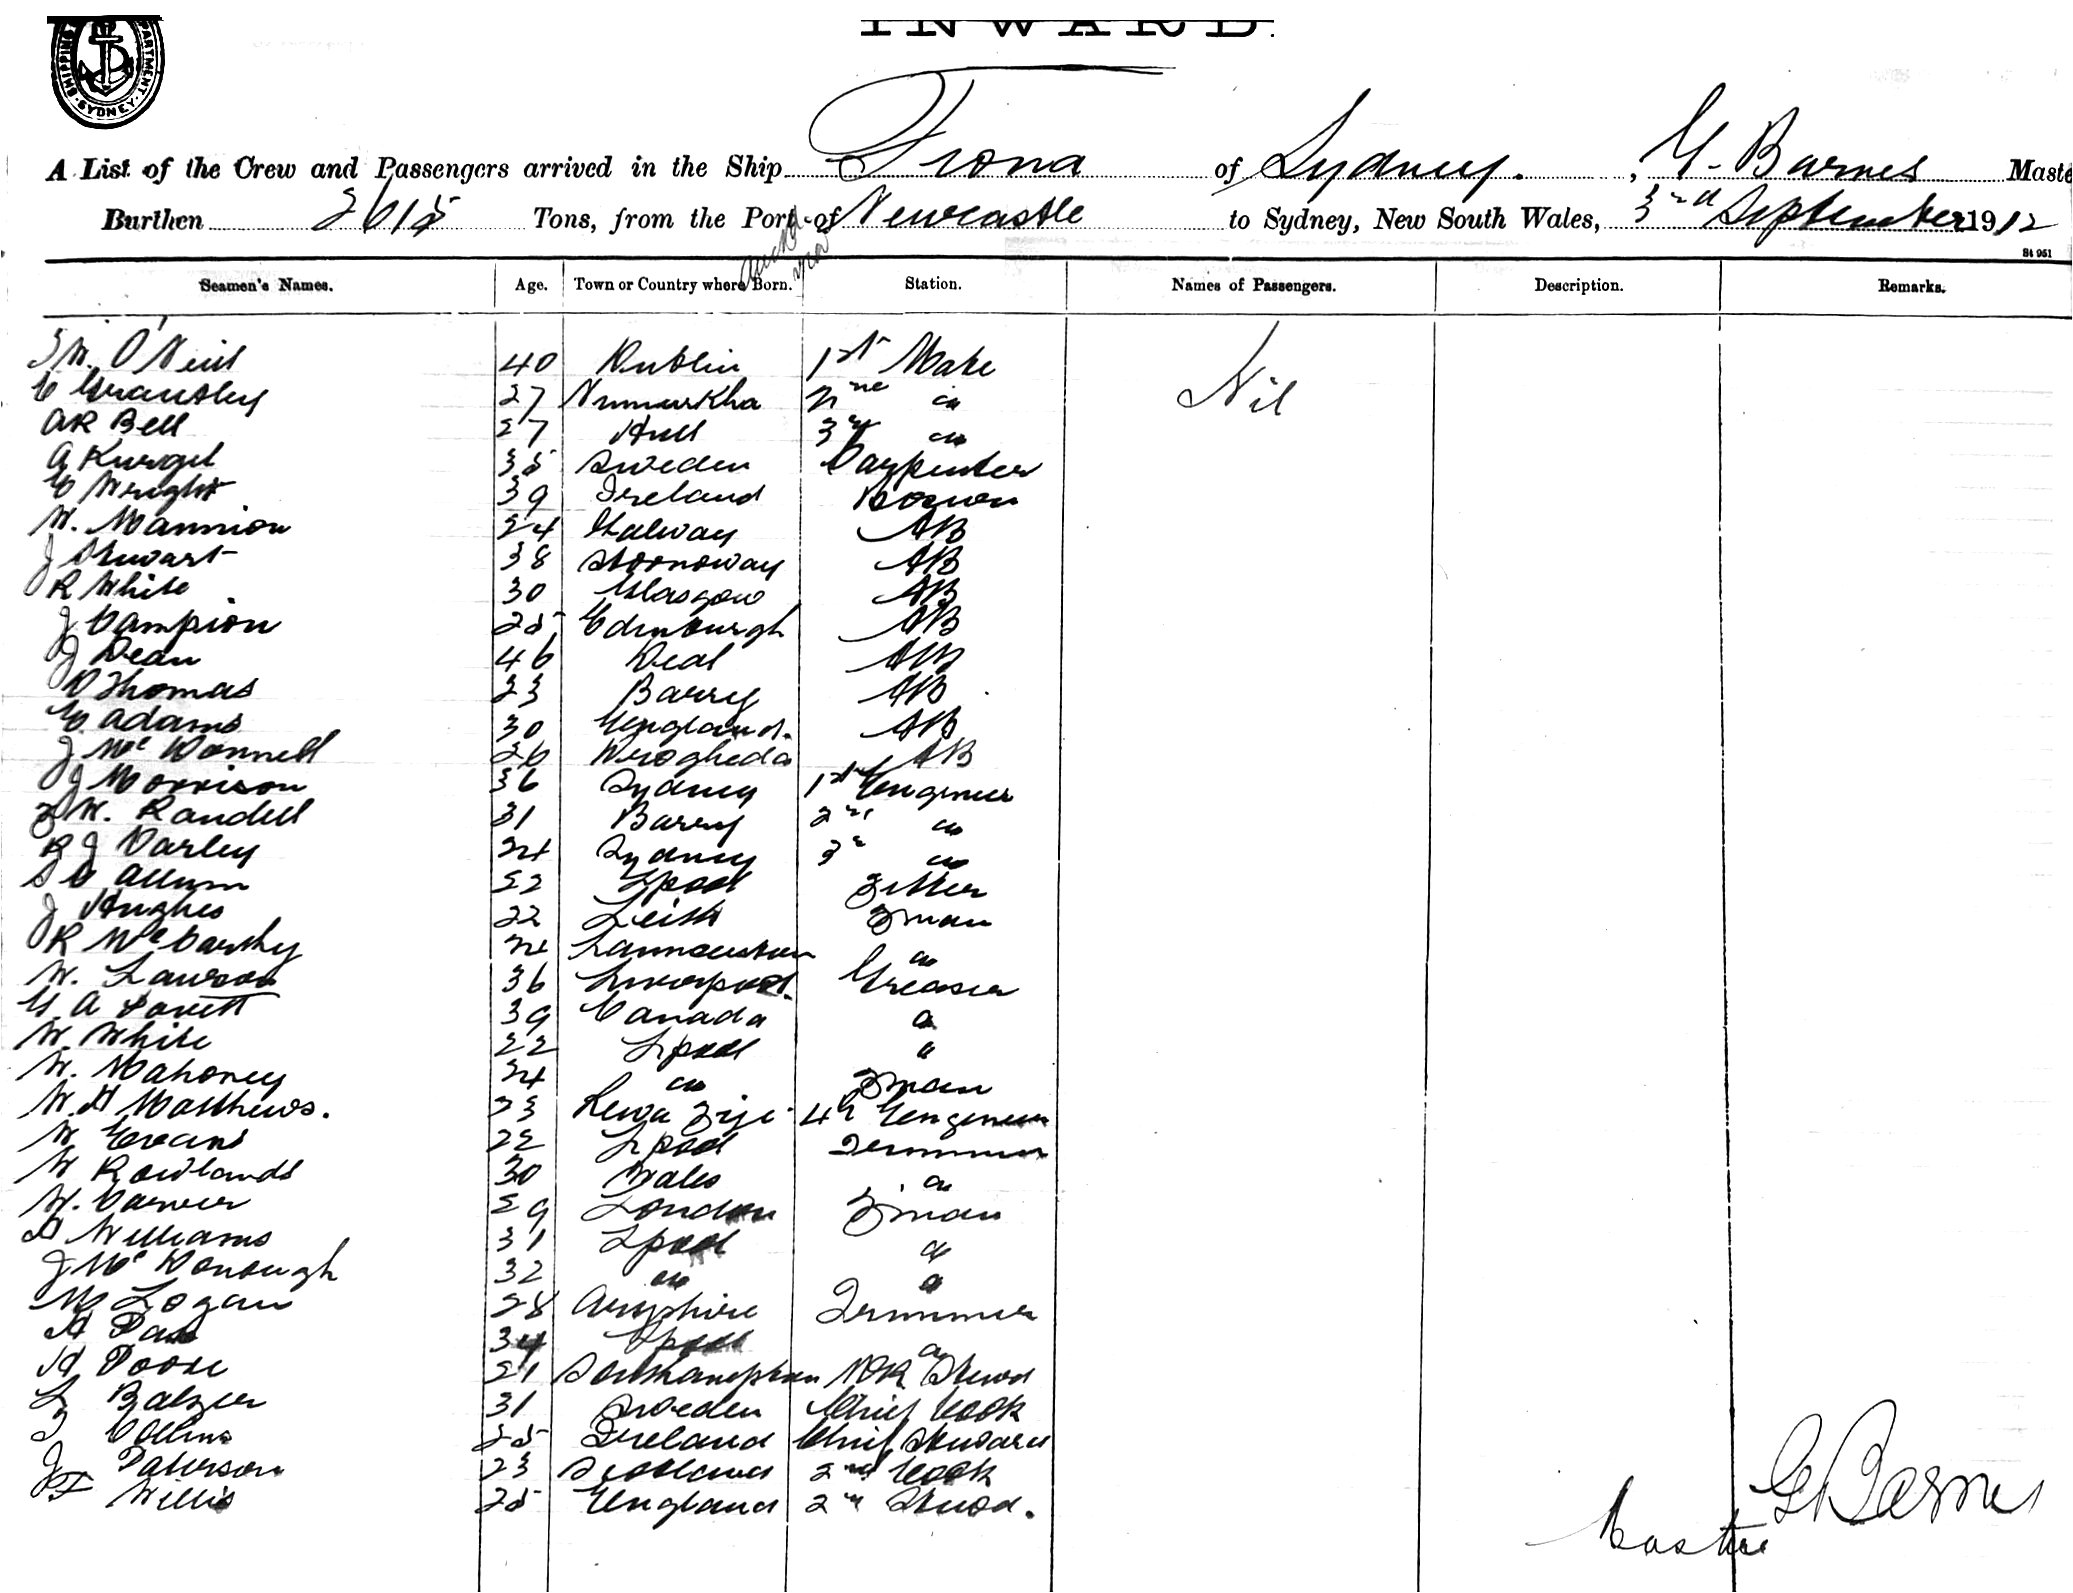 SHIPPING DEPARTMENT SYDNEY
INWARD.
A List of the Crew and Passengers arrived in the Ship Fiona of Sydney. , G. Barnes Maste
Burthen 2615 Tons, from the Port of Newcastle to Sydney, New South Wales, 3rd September 1912
via
St 951
Seamen's Names. Age. Town or Country where Born. Station. Names of Passengers. Description. Remarks.
W. O'Neill 40 Dublin 1st Mate Nil
E Grantley 27 Numurkha 2nd "
AR Bell 27 Hull 3rd "
A Kurgel 35 Sweden Carpenter
E Wright 39 Ireland Bosun
W. Mannion 24 Galway AB
J Stewart 38 Stornoway AB
R White 30 Glasgow AB
J Campion 25 Edinburgh AB
J Dean 46 Deal AB
D Thomas 23 Barry AB
E Adams 30 England. AB
J McDonnell 26 Drogheda AB
J Morrison 36 Sydney 1st Engineer
F W. Randell 31 Barry 2nd "
R J Darley 24 Sydney 3rd "
S C Allum 22 Lpool Fitter
J Hughes 22 Leith Fman
R McCarthy 24 Launceston "
W. Lawson 36 Liverpool. Greaser
G A Lovett 39 Canada "
W. White 22 Lpool "
W. Mahoney 24 " Fman
W. H Matthews. 23 Rewa Fiji 4th Engineer
W Evans 22 Lpool Trimmer
W Rowlands 30 Wales "
W. Carver 29 London Fman
H Williams 31 Lpool "
J McDonough 32 " "
M Logan 28 Argshire Trimmer
H 34 Lpool "
H Poore 21 Southampton MR Stewd
L Balzer 31 Sweden Chief Cook
T Collins 25 Ireland Chief Steward
J Paterson 23 Scotland 2nd Cook
F Willis 25 England 2nd Stewd.
G Barnes
Master